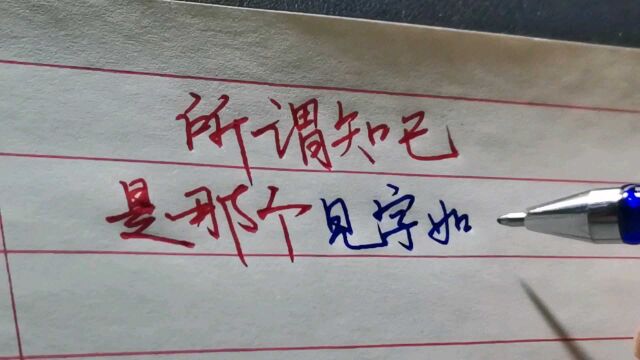 所谓知己
是那个见字如